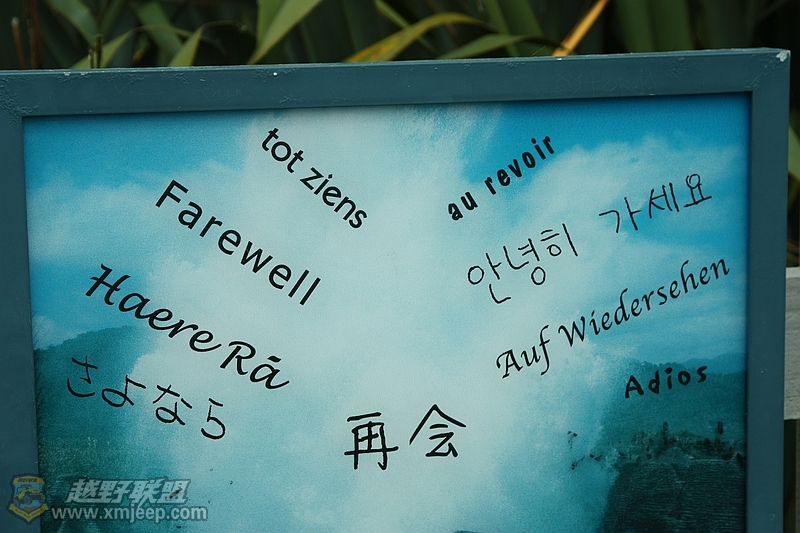 tot ziens
au revoir
Farewell
안녕히 가세요
Haere Rā
Auf Wiedersehen
さよなら
Adios
再会
越野联盟
www.xmjeep.com